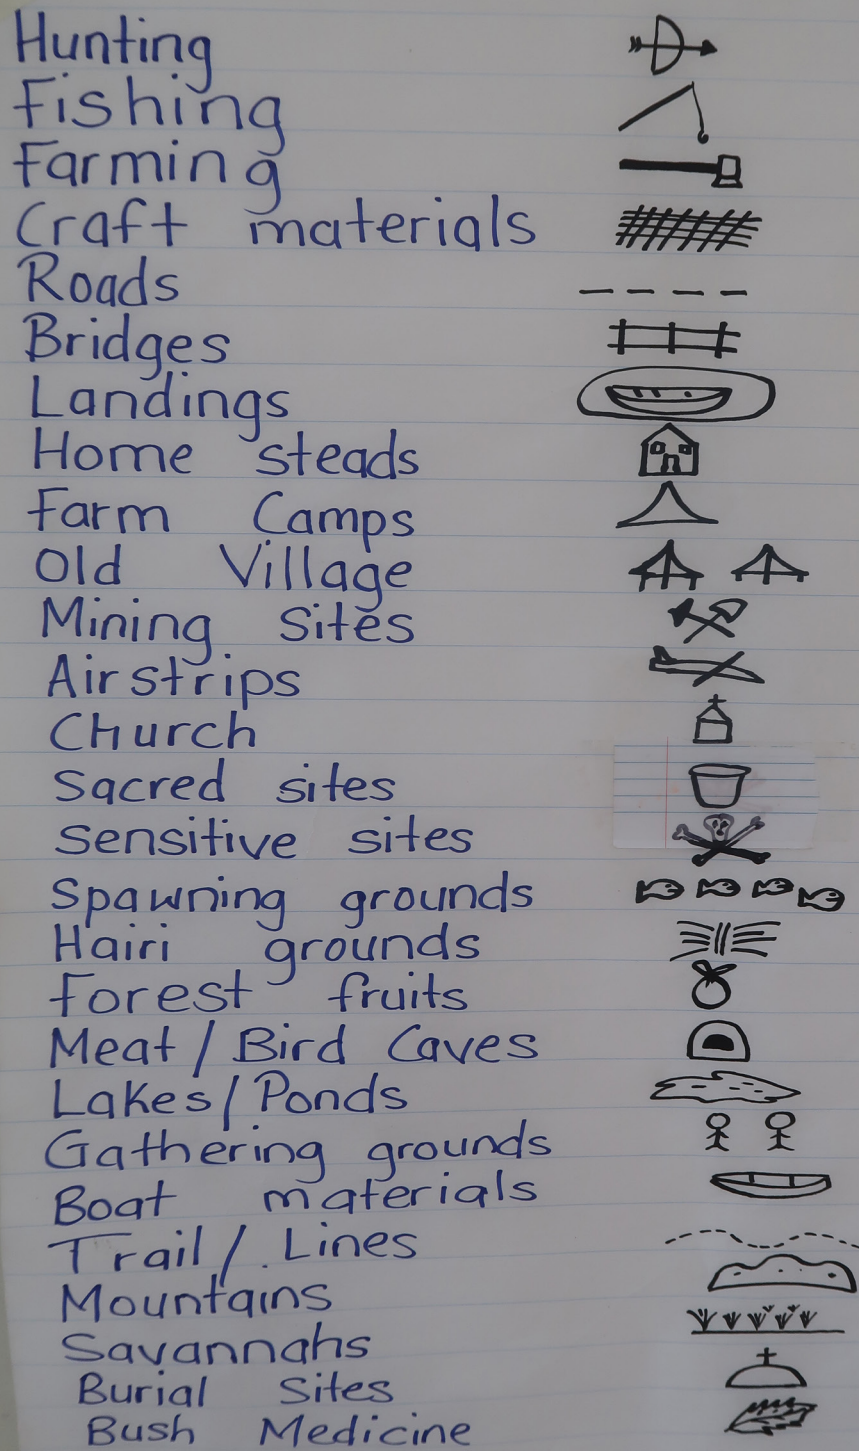 Hunting
Fishing
Farming
Craft materials
Roads
Bridges
Landings
Home steads
Farm Camps
Old Village
Mining Sites
Airstrips
Church
Sacred sites
Sensitive sites
Spawning grounds
Hairi grounds
Forest fruits
Meat / Bird Caves
Lakes / Ponds
Gathering grounds
Boat materials
Trail / Lines
Mountains
Savannahs
Burial Sites
Bush Medicine